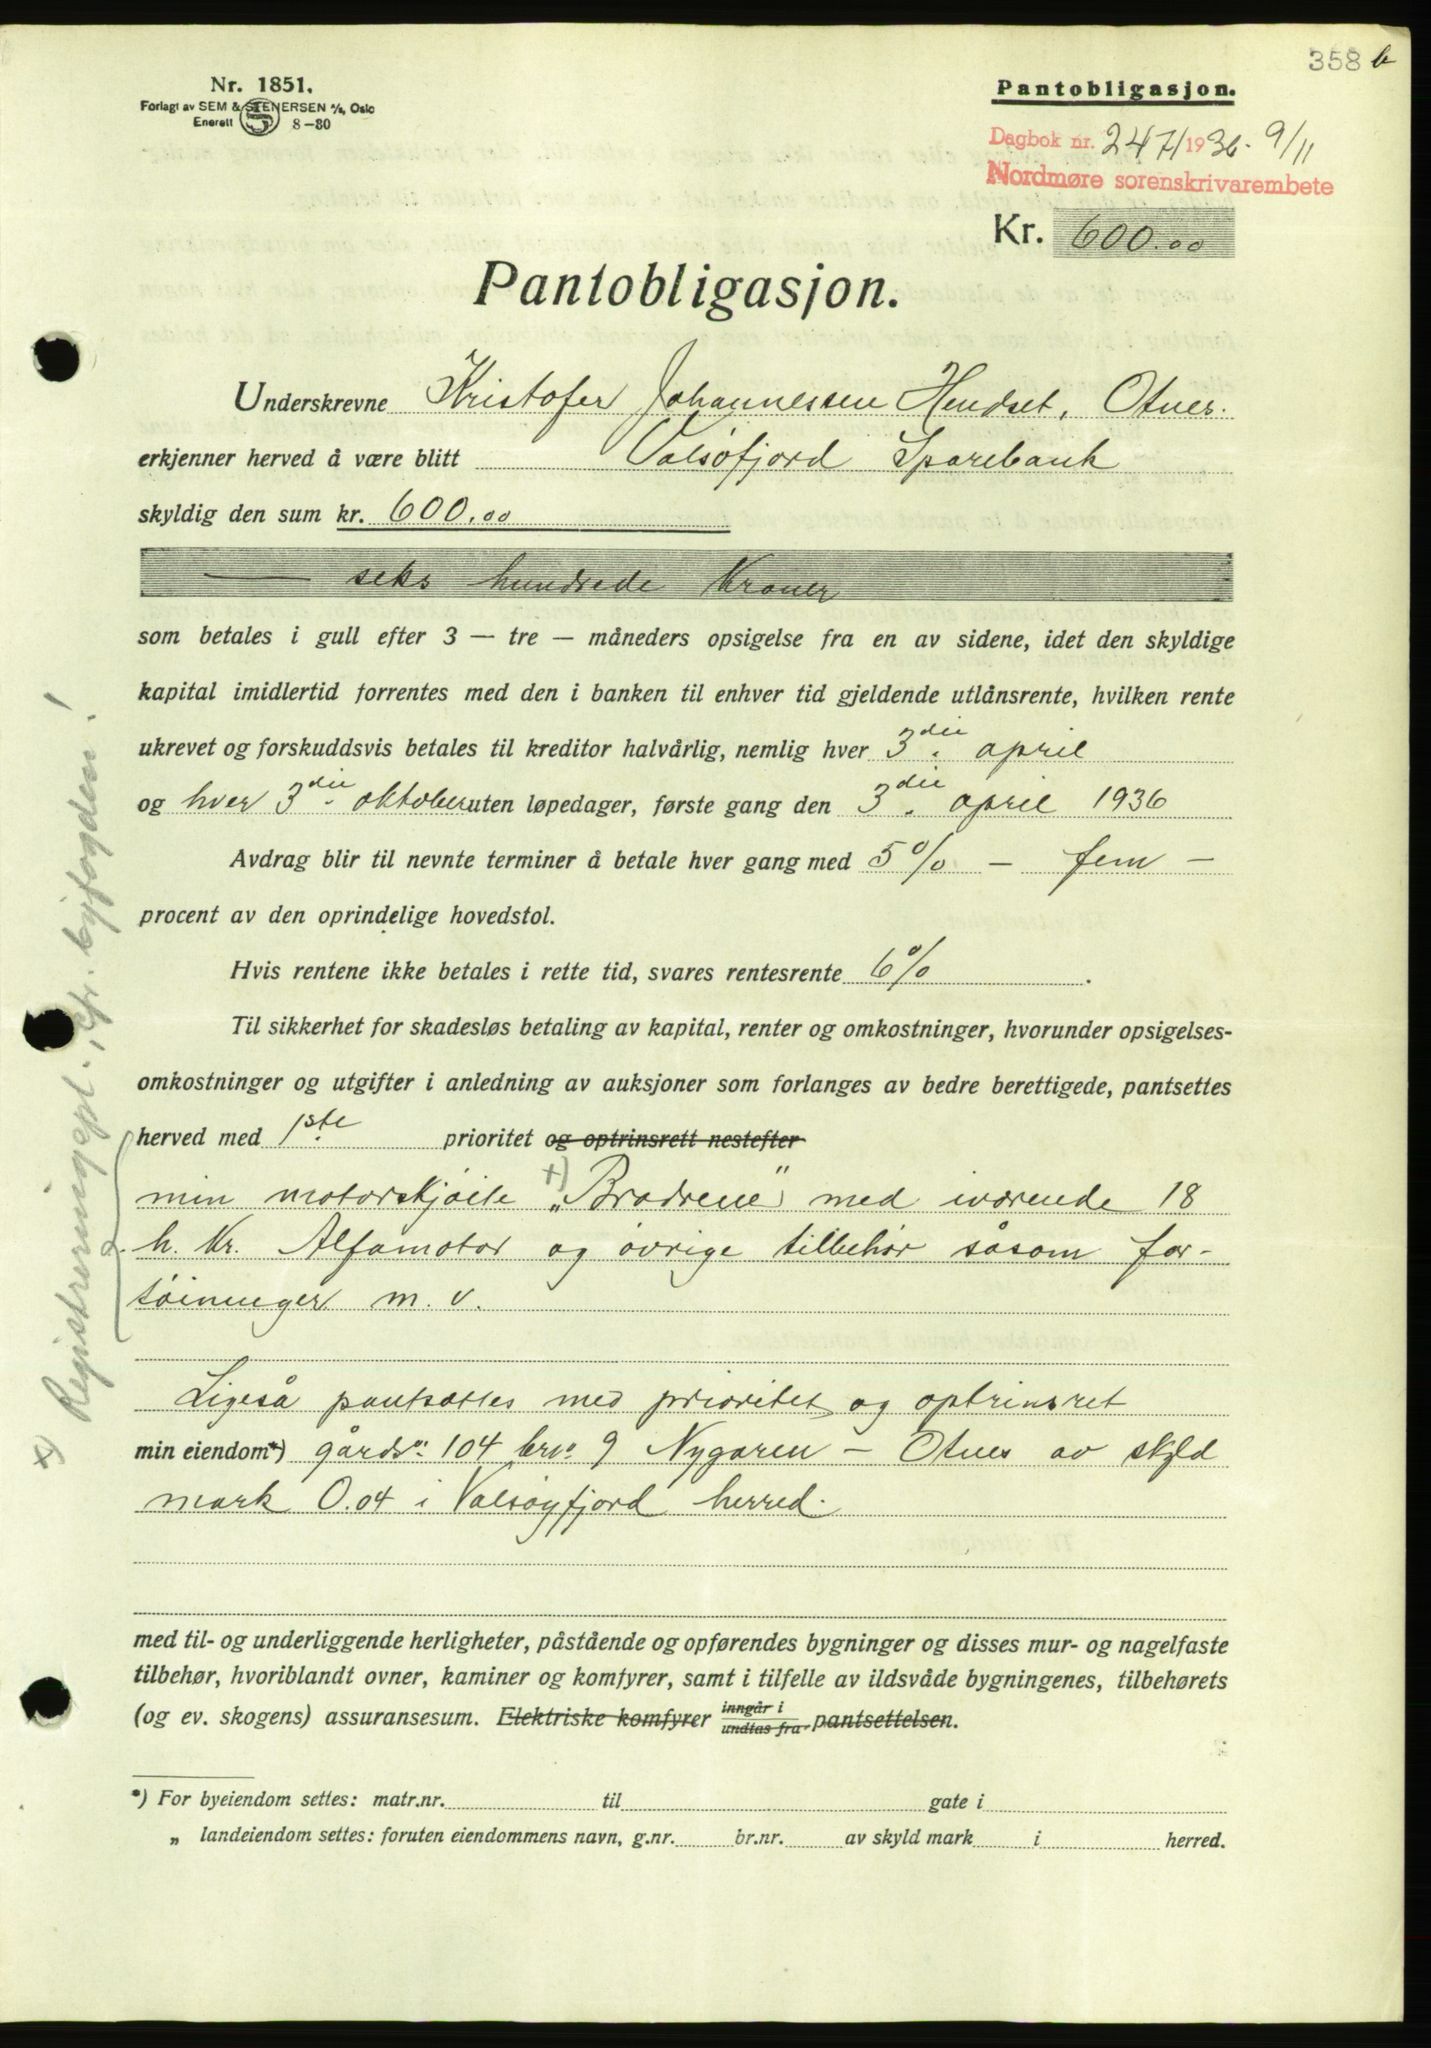 358 b
Nr. 1851.
Forlagt av SEM & STENERSEN A/S, Oslo
Enerett 8-30
Pantobligasjon.
Dagbok nr. 2471 1936 - 9/11
Nordmøre sorenskrivarembete
Kr. 600.00
Pantobligasjon.
Underskrevne Kristofer Johannessen Hendset, Otnes.
erkjenner herved å være blitt Valsøfjord Sparebank
skyldig den sum kr. 600.00
— seks hundrede Kroner
som betales i gull efter 3 — tre — måneders opsigelse fra en av sidene, idet den skyldige
kapital imidlertid forrentes med den i banken til enhver tid gjeldende utlånsrente, hvilken rente
ukrevet og forskuddsvis betales til kreditor halvårlig, nemlig hver 3die april
og hver 3die oktober uten løpedager, første gang den 3die april 1936
Avdrag blir til nevnte terminer å betale hver gang med 5% — fem —
procent av den oprindelige hovedstol.
Hvis rentene ikke betales i rette tid, svares rentesrente 6% .
Til sikkerhet for skadesløs betaling av kapital, renter og omkostninger, hvorunder opsigelses-
omkostninger og utgifter i anledning av auksjoner som forlanges av bedre berettigede, pantsettes
herved med 1ste prioritet og optrinsrett nestefter
min motorskjøite +) „Brødrene" med iværende 18
h. Kr. Alfamotor og øvrige tilbehør såsom for-
tøininger m. v.
Ligeså pantsættes med prioritet og optrinsret
min eiendom*) gårdsno: 104 brno: 9 Nygaren — Otnes av skyld
mark 0.04 i Valsøyfjord herred.
med til- og underliggende herligheter, påstående og opførendes bygninger og disses mur- og nagelfaste
tilbehør, hvoriblandt ovner, kaminer og komfyrer, samt i tilfelle av ildsvåde bygningenes, tilbehørets
(og ev. skogens) assuransesum. Elektriske komfyrer inngår i / undtas fra pantsettelsen.
*) For byeiendom settes: matr.nr. til gate i
„ landeiendom settes: foruten eiendommens navn, g.nr. br.nr. av skyld mark i herred.
+) Registreringspl., cfr. byfogden!